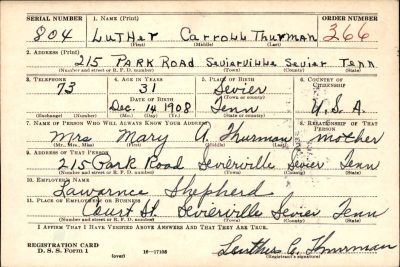 SERIAL NUMBER 1. NAME (Print) ORDER NUMBER
804 LutHer Carroll Thurman 266
(First) (Middle) (Last)
2. ADDRESS (Print)
215 PARK ROAD Sevierville Sevier Tenn
(Number and street or R. F. D. number) (Town) (County) (State)
3. TELEPHONE 4. AGE IN YEARS 5. PLACE OF BIRTH 6. COUNTRY OF CITIZENSHIP
73 31 Sevier
(Town or county)
DATE OF BIRTH
Dec. 14 1908 Tenn U.S.A.
(Exchange) (Number) (Mo.) (Day) (Yr.) (State or country)
7. NAME OF PERSON WHO WILL ALWAYS KNOW YOUR ADDRESS 8. RELATIONSHIP OF THAT PERSON
Mrs Mary A. Thurman mother
(Mr., Mrs., Miss) (First) (Middle) (Last)
9. ADDRESS OF THAT PERSON
215 Park Road Sevierville Sevier Tenn
(Number and street or R. F. D. number) (Town) (County) (State)
10. EMPLOYER'S NAME
Lawarnce Shepherd
11. PLACE OF EMPLOYMENT OR BUSINESS
Court St. Sevierville Sevier Tenn
(Number and street or R. F. D. number) (Town) (County) (State)
I AFFIRM THAT I HAVE VERIFIED ABOVE ANSWERS AND THAT THEY ARE TRUE.
REGISTRATION CARD
D. S. S. Form 1 (over) Luther C. Thurman
(Registrant's signature)